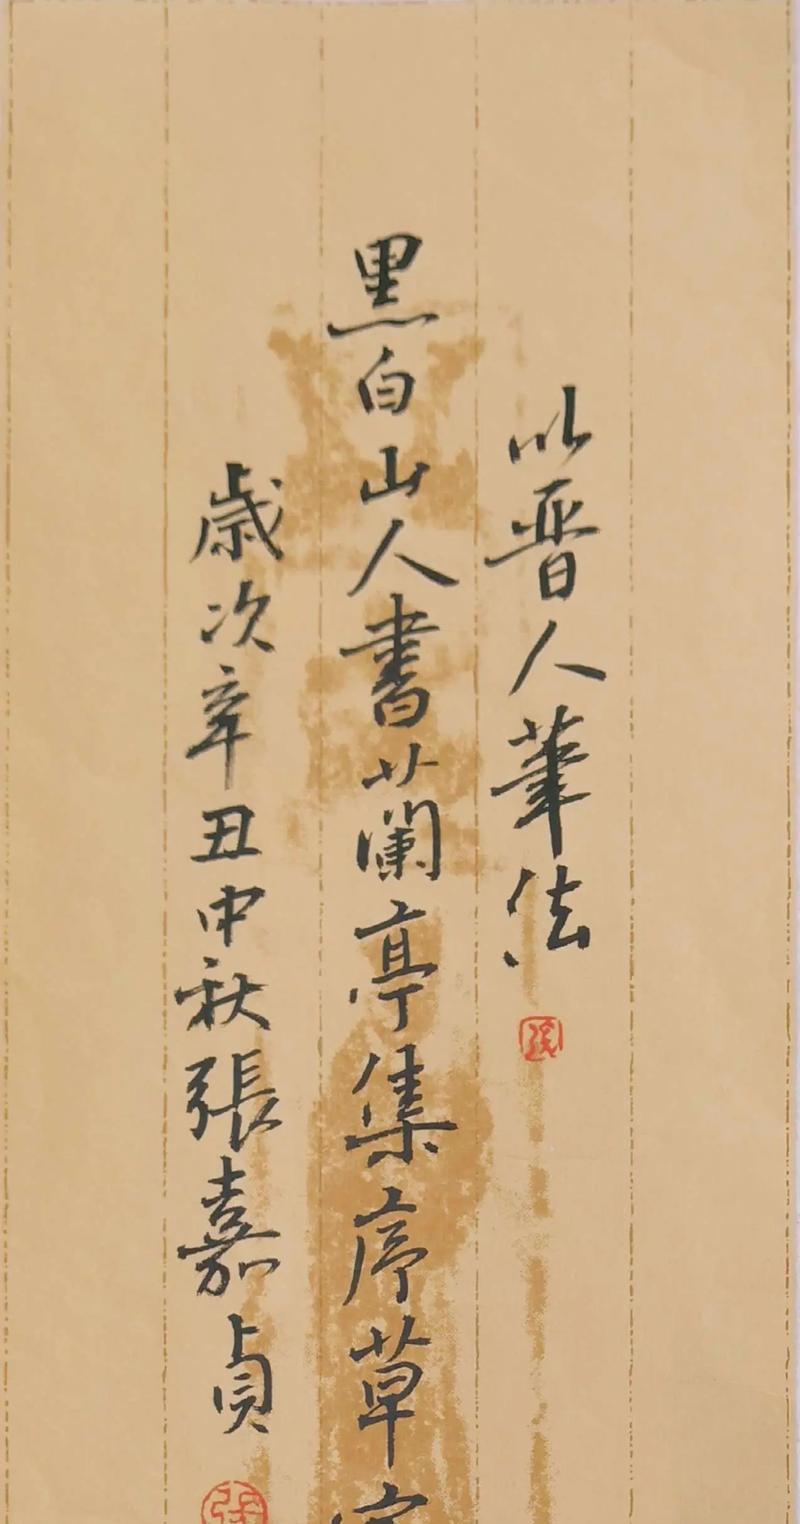 以晉人筆法
黑白山人書蘭亭集序草
歲次辛丑中秋張嘉貞
張